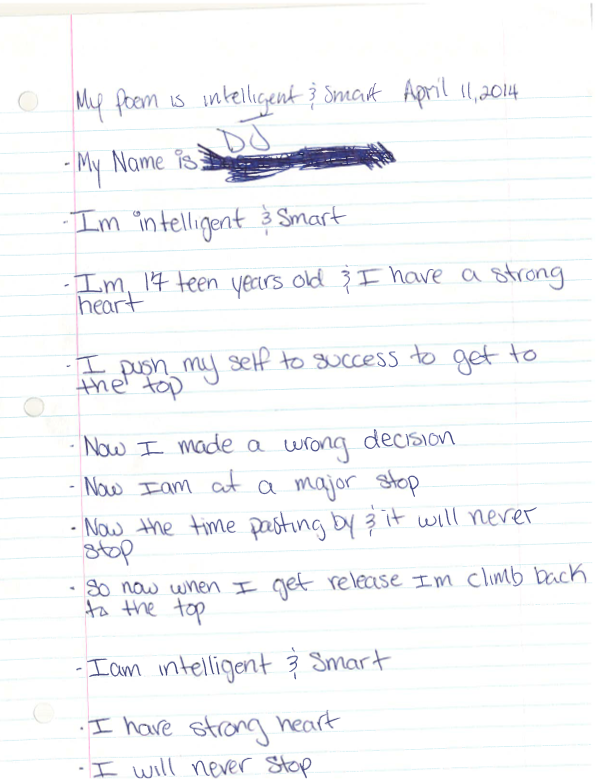 My Poem is intelligent & Smart April 11, 2014
DJ
- My Name is
- Im intelligent & Smart
- Im, 17 teen years old & I have a strong
heart
- I push my self to success to get to
the top
- Now I made a wrong decision
- Now Iam at a major stop
- Now the time pasting by & it will never
stop
- So now when I get release Im climb back
to the top
- Iam intelligent & Smart
- I have strong heart
- I will never stop